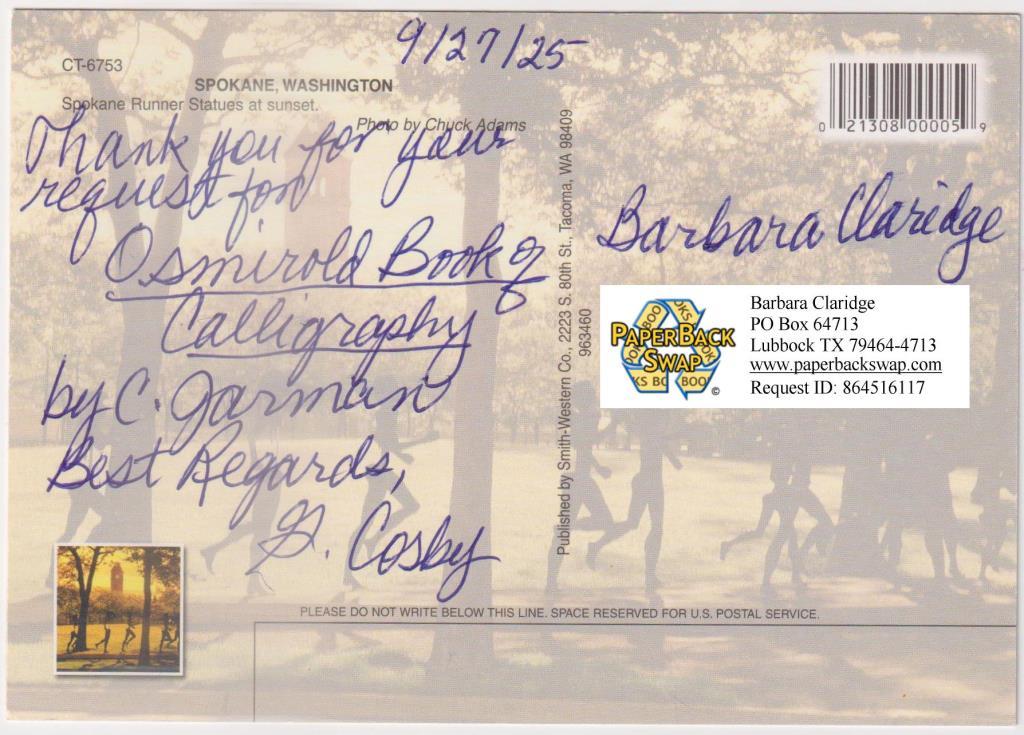 9/27/25
CT-6753
SPOKANE, WASHINGTON
Spokane Runner Statues at sunset.
Photo by Chuck Adams
Thank you for your
request for
Osmirold Book of
Calligraphy
by C. Jarman
Best Regards,
G. Cosby
Published by Smith-Western Co., 2223 S. 80th St., Tacoma, WA 98409
963460
0 21308 00005 9
Barbara Claridge
PAPERBACK
SWAP
©
Barbara Claridge
PO Box 64713
Lubbock TX 79464-4713
www.paperbackswap.com
Request ID: 864516117
PLEASE DO NOT WRITE BELOW THIS LINE. SPACE RESERVED FOR U.S. POSTAL SERVICE.